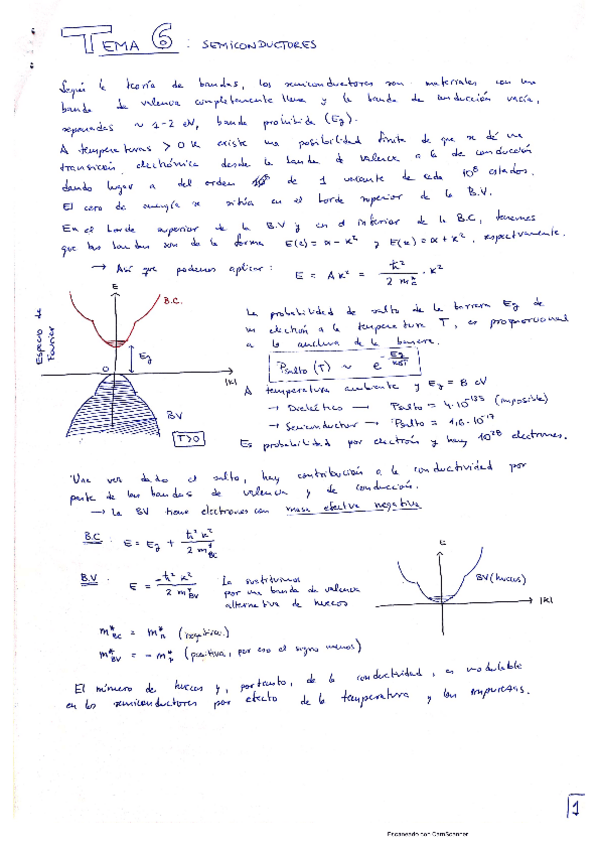 TEMA 6: SEMICONDUCTORES
Según la teoría de bandas, los semiconductores son materiales con una
banda de valencia completamente llena y la banda de conducción vacía,
separadas ~ 1-2 eV, banda prohibida (Eg).
A temperaturas > 0 K existe una posibilidad finita de que se dé una
transición electrónica desde la banda de valencia a la de conducción
dando lugar a del orden de 1 vacante de cada 10⁸ estados.
El cero de energía se sitúa en el borde superior de la B.V.
En el borde superior de la B.V y en el inferior de la B.C, tenemos
que las bandas son de la forma E(k) = α - k² y E(k) = α + k², respectivamente.
→ Así que podemos aplicar: E = Ak² = ħ²/2m*e · k²
Espacio de Fourier
E
B.C.
Eg
0
|k|
BV
T>0
La probabilidad de salto de la barrera Eg de
un electrón a la temperatura T, es proporcional
a la anchura de la barrera.
Psalto (T) ~ e^-Eg/KBT
A temperatura ambiente y Eg = 8 eV
→ Dieléctrico → Psalto = 4·10⁻¹³⁵ (imposible)
→ Semiconductor → Psalto = 1,6·10⁻¹⁷
Es probabilidad por electrón y hay 10²⁸ electrones.
Una vez dado el salto, hay contribución a la conductividad por
parte de las bandas de valencia y de conducción.
→ La BV tiene electrones con masa efectiva negativa
B.C. E = Eg + ħ²k²/2m*BC
B.V. E = -ħ²k²/2m*BV
La sustituimos
por una banda de valencia
alternativa de huecos
E
BV (huecos)
|k|
m*BC = m*n (negativa)
m*BV = - m*p (positiva, por eso el signo menos)
El número de huecos y, por tanto, de la conductividad, es modulable
en los semiconductores por efecto de la temperatura y las impurezas.
1
Escaneado con CamScanner